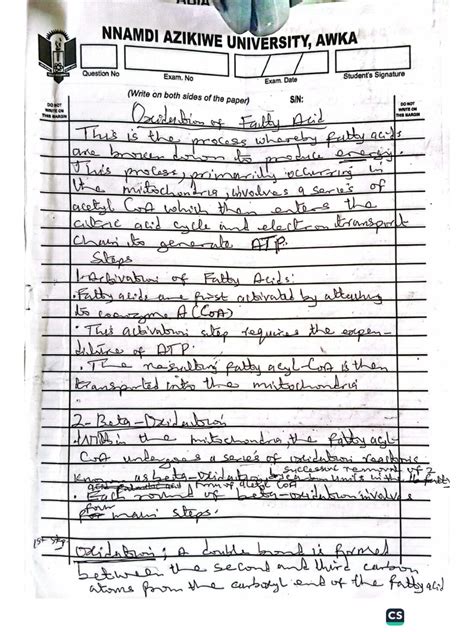 NNAMDI AZIKIWE UNIVERSITY, AWKA
Question No
Exam. No
Exam. Date
Student's Signature
(Write on both sides of the paper) S/N:
DO NOT WRITE ON THIS MARGIN
DO NOT WRITE ON THIS MARGIN
Oxidation of Fatty Acid
This is the process whereby fatty acids
are broken down to produce energy.
This process, primarily occurring in
the mitochondria, involves a series of
acetyl CoA which then enters the
citric acid cycle and electron transport
chain to generate ATP.
Steps
1. Activation of Fatty Acids:
• Fatty acids are first activated by attaching
to coenzyme A (CoA)
• This activation step requires the expen-
diture of ATP.
• The resulting fatty acyl-CoA is then
transported into the mitochondria
2- Beta-Oxidation
• Within the mitochondria, the fatty acyl-
CoA undergoes a series of oxidation reactions
successive removal of 2
known as beta-oxidation carbon units in the
form of acetyl CoA
• Each round of beta-oxidation involves
four main steps:
1st step
Oxidation; A double bond is formed
between the second and third carbon
atoms from the carboxyl end of the fatty acid
CS